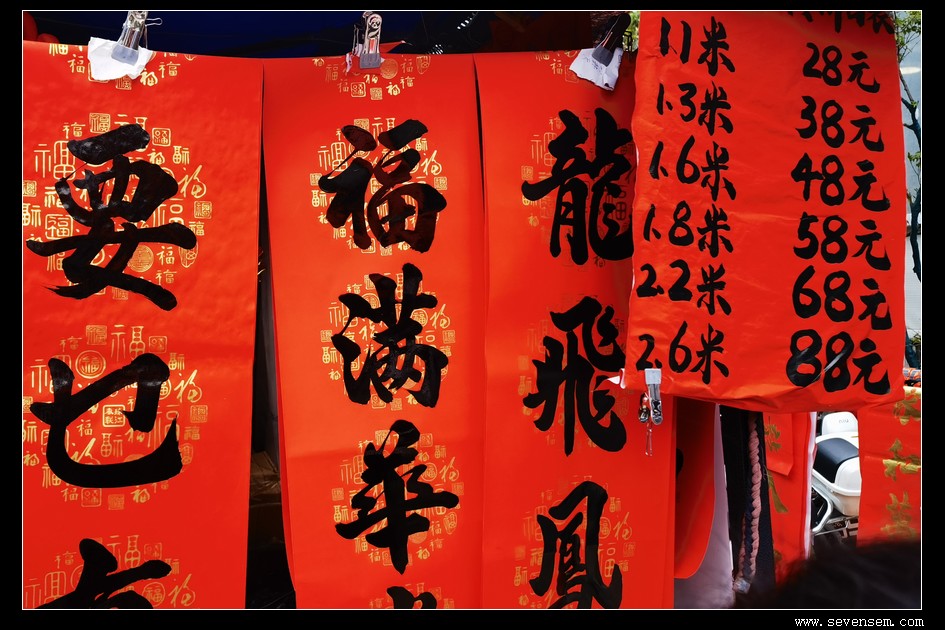 福满華
龍飛鳳
1.1米 28元
1.3米 38元
1.6米 48元
1.8米 58元
2.2米 68元
2.6米 88元
www.sevensem.com